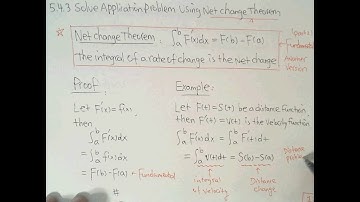 5.4.3 Solve Application Problem Using Net Change Theorem
Net change Theorem. ∫ₐᵇ F'(x)dx = F(b) - F(a)
The integral of a rate of change is the Net change
Fundamental
another version
Proof:
Let F'(x) = f(x),
then
∫ₐᵇ F'(x)dx
= ∫ₐᵇ f(x)dx
= F(b) - F(a) ← Fundamental
#
Example:
Let F(t) = S(t) be a distance function
then F'(t) = V(t) is the Velocity Function
∫ₐᵇ F'(x)dx = ∫ₐᵇ F'(t)dt
= ∫ₐᵇ V(t)dt = S(b) - S(a)
distance
problem
integral
of velocity
Distance
change